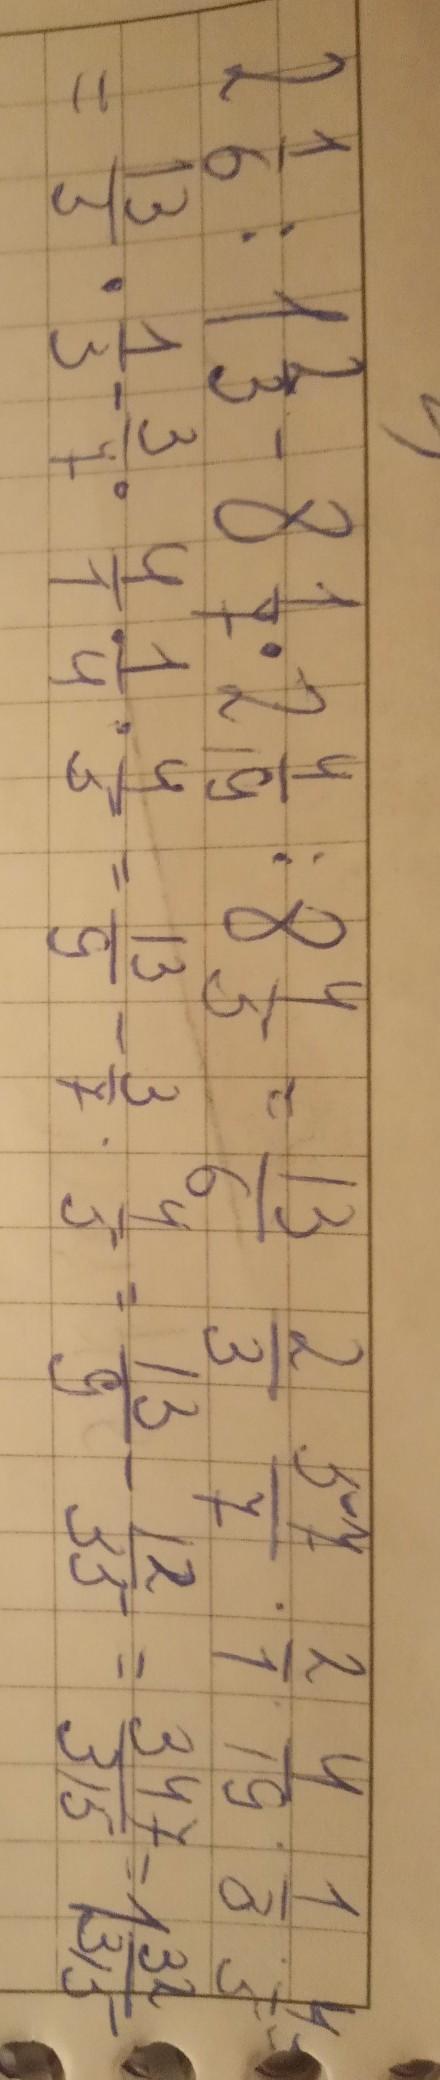 2 1/6 : 1 2/3 - 8 1/7 · 2 4/19 : 8 4/5 = 13/6 2/3 57/7 · 2/1 · 4/19 · 1/8 · 4/5 =
= 13/3 · 1/3 - 3/7 · 4/1 · 1/4 · 4/5 = 13/9 - 3/7 · 4/5 = 13/9 - 12/35 = 347/315 = 1 32/315